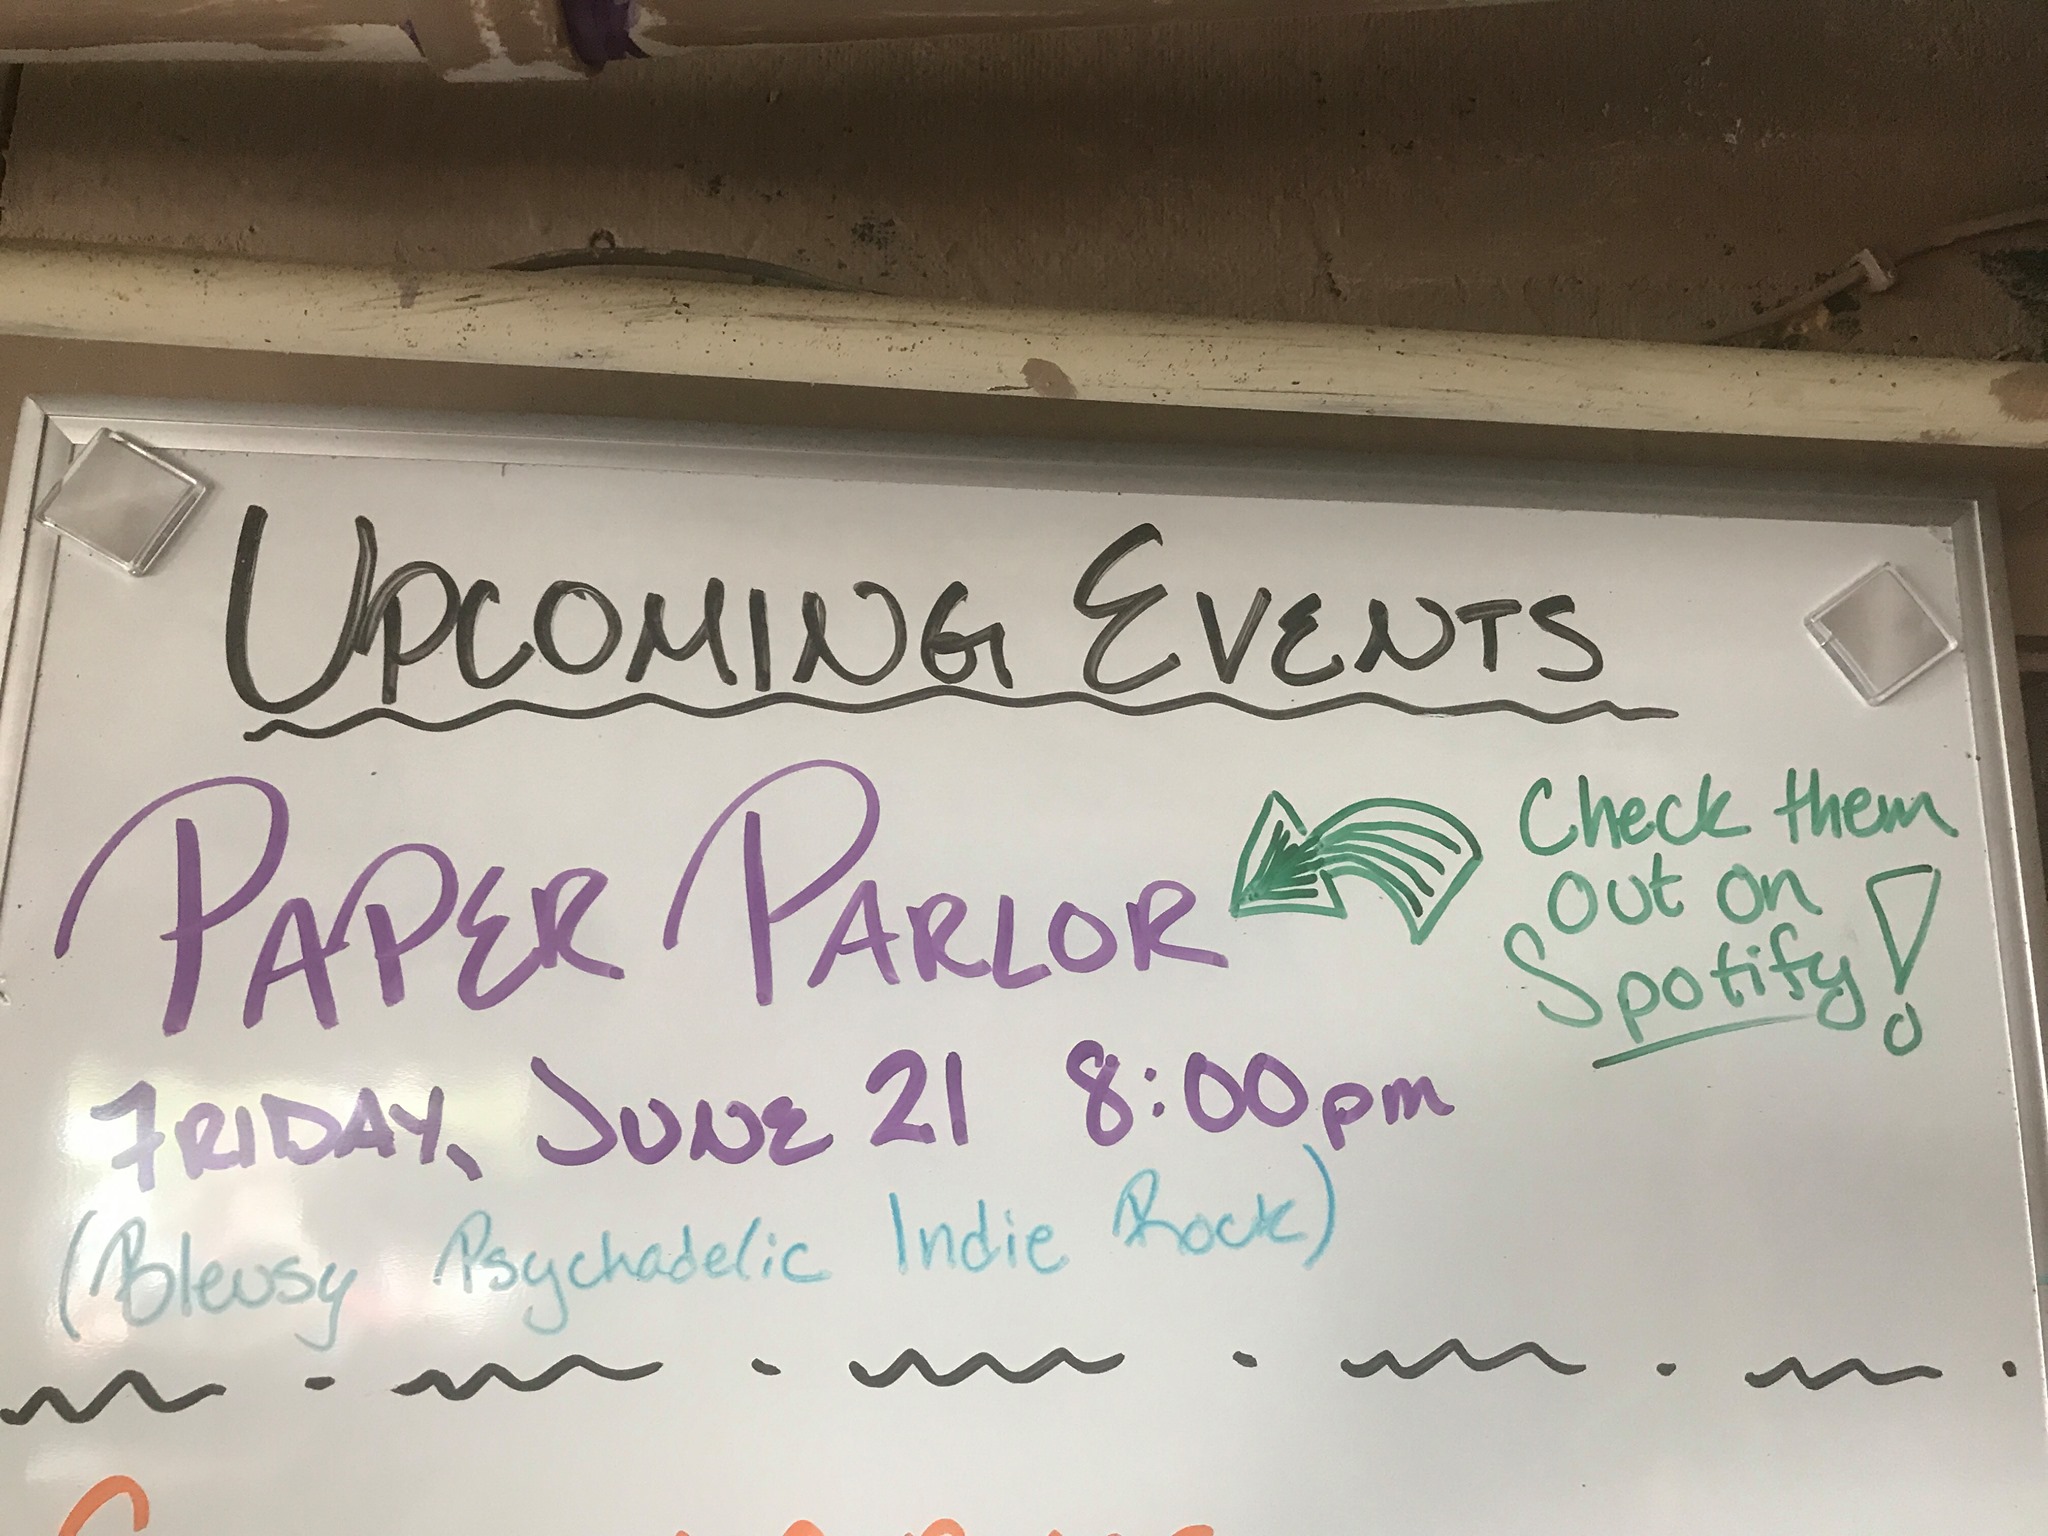 UPCOMING EVENTS
PAPER PARLOR
Check them
out on
Spotify!
FRIDAY, JUNE 21 8:00pm
(Bluesy Psychadelic Indie Rock)